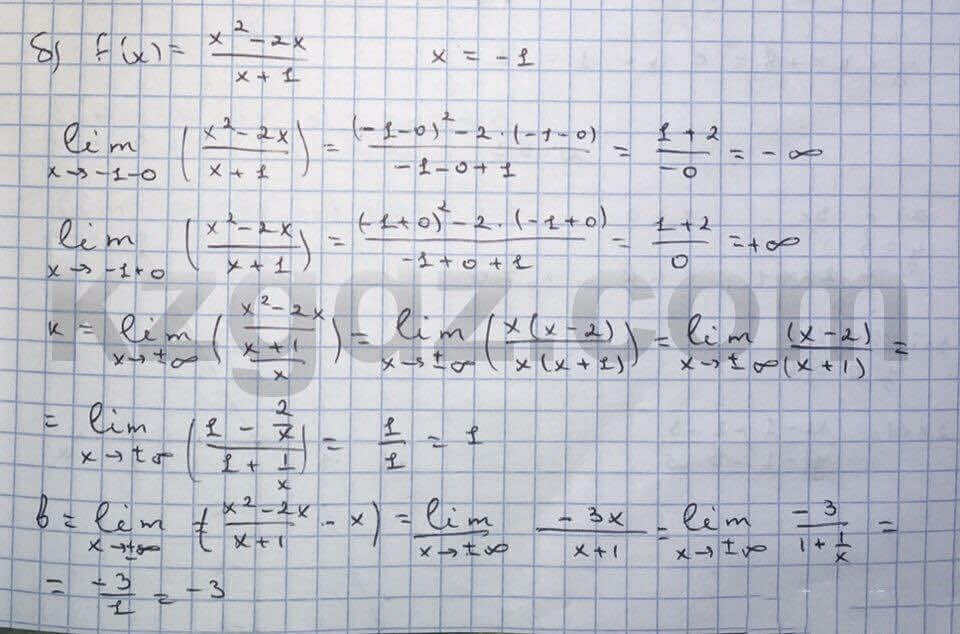 б) f(x) = (x² - 2x)/(x + 1)    x = -1
lim x→-1-0 ((x² - 2x)/(x + 1)) = ((-1-0)² - 2·(-1-0))/(-1-0+1) = (1+2)/(-0) = -∞
lim x→-1+0 ((x² - 2x)/(x + 1)) = ((-1+0)² - 2·(-1+0))/(-1+0+1) = (1+2)/0 = +∞
к = lim x→±∞ ((x² - 2x)/(x+1)/x) = lim x→±∞ (x(x-2)/x(x+1)) = lim x→±∞ (x-2)/(x+1) =
= lim x→±∞ ((1 - 2/x)/(1 + 1/x)) = 1/1 = 1
b = lim x→±∞ ((x² - 2x)/(x+1) - x) = lim x→±∞ (-3x)/(x+1) = lim x→±∞ (-3)/(1 + 1/x) =
= (-3)/1 = -3
kzgdz.com